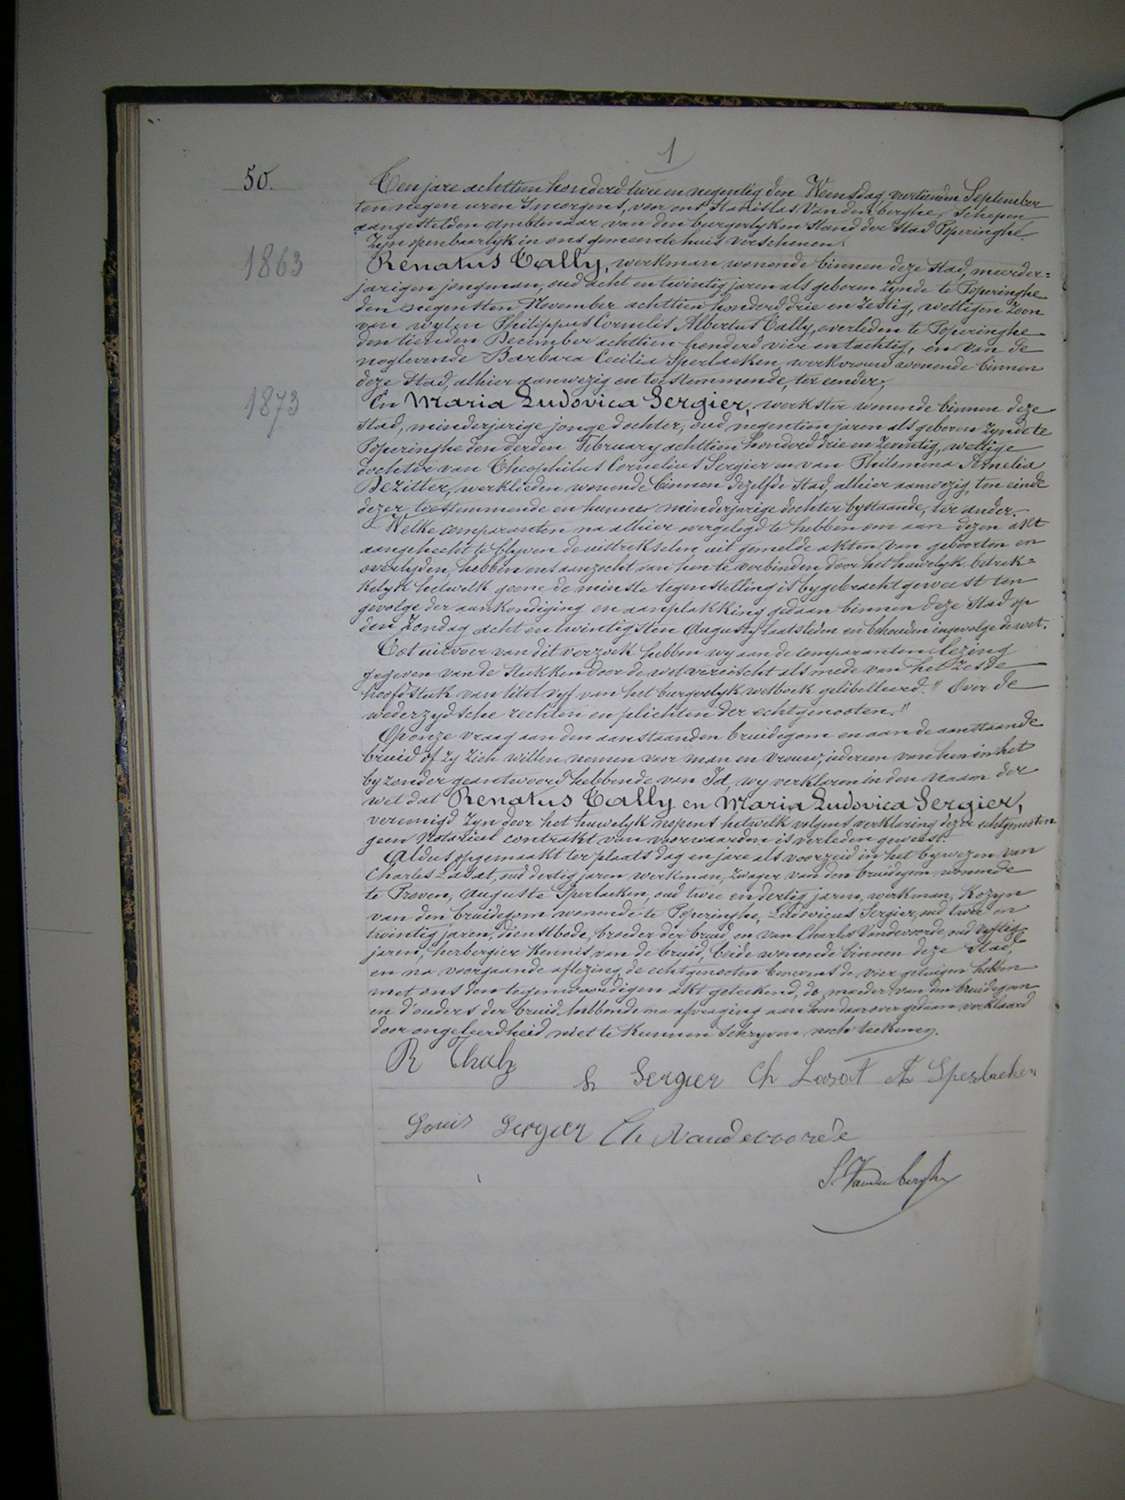 1
50.
Ten jare achttien honderd twee en negentig den Weensdag veertienden September
ten negen uren smorgens, voor ons Stanislas Vandenberghe, Schepen
aangestelden ambtenaar van den burgerlyken stand der stad Poperinghe
zyn openbaarlyk in ons gemeentehuis verschenen.
1863
Renatus Tally, werkman wonende binnen deze stad, meerder=
jarigen jongman, oud acht en twintig jaren als geboren zynde te Poperinghe
den negensten November achttien honderd drie en zestig, wettigen zoon
van wylen Philippus Cornelis Albertus Tally, overleden te Poperinghe
den tienden December achttien honderd vier en tachtig, en van de
noglevende Barbara Cecilia Sperlaeken, werkvrouw wonende binnen
deze stad, alhier aanwezig en toestemmende, ter eender,
1873
En Maria Ludovica Sergier, werkster wonende binnen deze
stad, minderjarige jonge dochter, oud negentien jaren als geboren zynde te
Poperinghe den derden February achttien honderd drie en zeventig, wettige
dochter van Theophilus Cornelius Sergier en van Philomena Amelia
Dezitter, werklieden wonende binnen dezelfde stad, alhier aanwezig, ten einde
dezer toestemmende en hunne minderjarige dochter bystaande, ter ander.
Welke comparanten na alhier overgelegd te hebben om aan dezen akt
aangehecht te blyven de uittrekselen uit gemelde akten van geboorten en
overlyden, hebben ons aanzocht van hen te verbinden door het huwelyk betrek=
kelyk hetwelk geene de minste tegenstelling is bygebracht geweest ten
gevolge der aankondiging en aanplakking gedaan binnen deze stad op
den Zondag acht en twintigsten Augusty laatstleden en behouden ingevolge de wet.
Tot uitvoer van dit verzoek hebben wy aan de comparanten lezing
gegeven van de stukken door de wet vereischt alsmede van het zesde
hoofdstuk van titel vyf van het burgerlyk wetboek gelibelleerd: " Over de
wederzydsche rechten en plichten der echtgenooten."
Op onze vraag aan den aanstaanden bruidegom en aan de aanstaande
bruid of zy zich willen nemen voor man en vrouw, iedereen van hen in het
byzonder geantwoord hebbende van Ja, wy verklaren in den naam der
wet dat Renatus Tally en Maria Ludovica Sergier,
vereenigd zyn door het huwelyk nopens hetwelk volgens verklaring dezer echtgenooten
geen notarieel contrakt van voorwaarden is verleden geweest.
Aldus opgemaakt ter plaats dag en jare als voorzeid in het bywezen van
Charles Lasat, oud dertig jaren werkman, zwager van den bruidegom wonende
te Proven, Auguste Sperlaeken, oud twee en dertig jaren, werkman, kozyn
van den bruidegom wonende te Poperinghe, Ludovicus Sergier, oud twee en
twintig jaren, dienstbode, broeder der bruid, en van Charles Vandevoorde, oud vyftig
jaren, herbergier kennis van de bruid, beide wonende binnen deze stad,
en na voorgaande aflezing de echtgenooten benevens de vier getuigen hebben
met ons den tegenwoordigen akt geteekend, de moeder van den bruidegom
en d'ouders der bruid, hebbende na afvraging aan hun daarover gedaan verklaard
door ongeleerdheid niet te kunnen schryven noch teekenen.
R
Sergier Ch Lasat A Sperlaeken
Louis Sergier Ch Vandevoorde
S. Vandenberghe